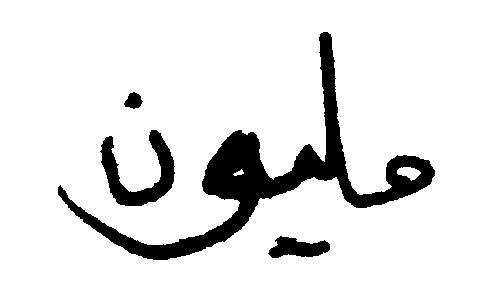 مليون